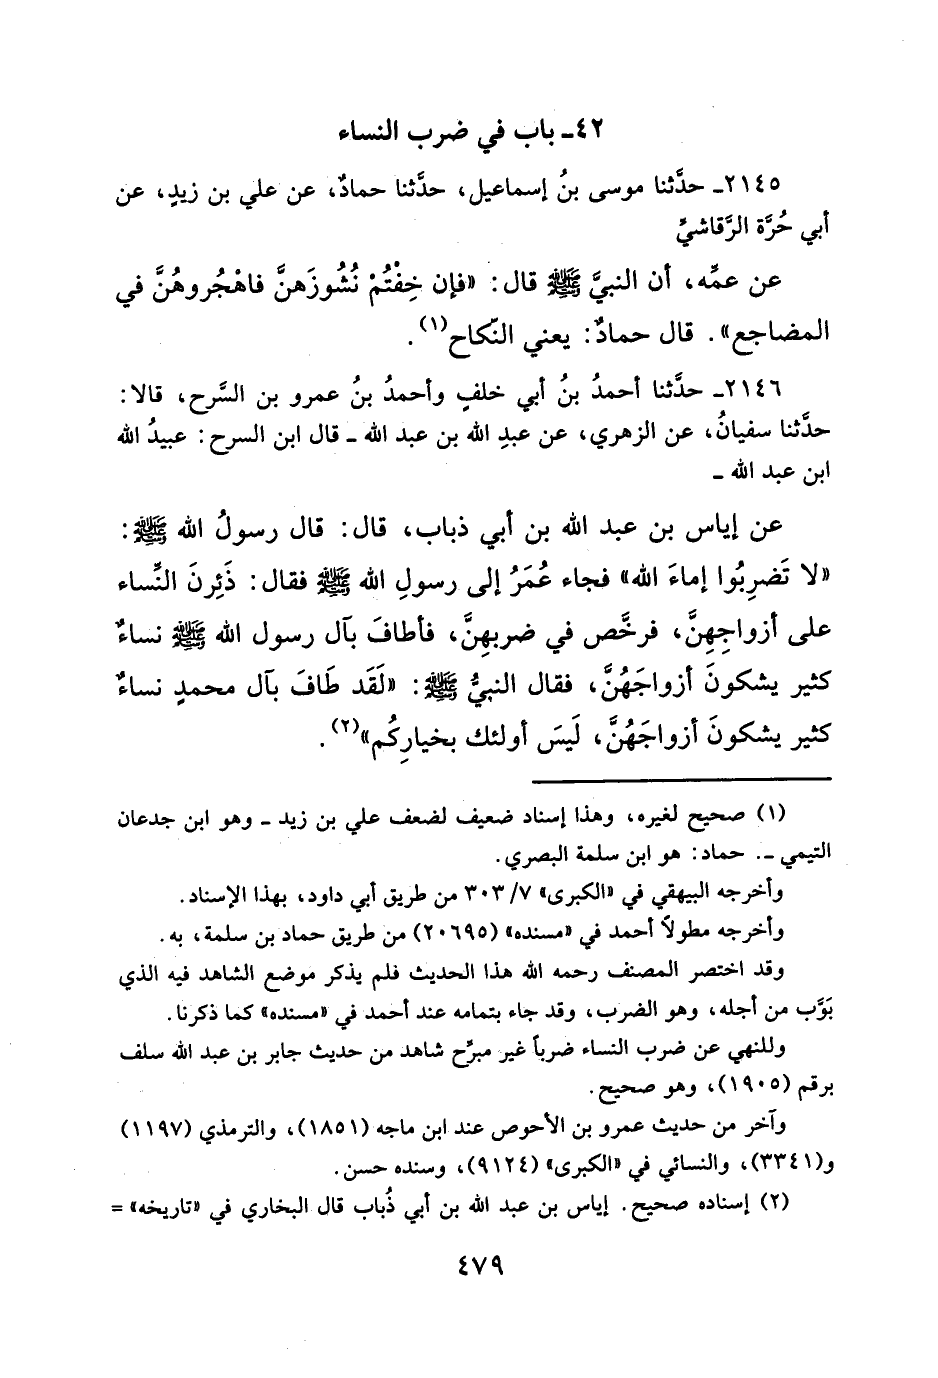 ٤٢ـ باب في ضرب النساء
٢١٤٥ـ حدَّثنا موسى بنُ إسماعيل، حدَّثنا حمادٌ، عن علي بن زيدٍ، عن
أبي حُرَّة الرَّقاشيِّ
عن عمِّه، أن النبيَّ ﷺ قال: «فإن خِفْتُمْ نُشُوزَهنَّ فاهْجُروهُنَّ في
المضاجع». قال حمادٌ: يعني النّكاح(١).
٢١٤٦ـ حدَّثنا أحمدُ بنُ أبي خلفٍ وأحمدُ بنُ عمرو بن السَّرح، قالا:
حدَّثنا سفيانُ، عن الزهري، عن عبدِ الله بن عبد الله ـ قال ابن السرح: عبيدُ الله
ابن عبد الله ـ
عن إياس بن عبد الله بن أبي ذباب، قال: قال رسولُ الله ﷺ:
«لا تَضرِبُوا إماءَ الله» فجاء عُمَرُ إلى رسولِ الله ﷺ فقال: ذَئِرنَ النِّساء
على أزواجِهِنَّ، فرخَّص في ضربهِنَّ، فأطافَ بآل رسول الله ﷺ نساءٌ
كثير يشكونَ أزواجَهُنَّ، فقال النبيُّ ﷺ: «لَقَد طَافَ بآل محمدٍ نساءٌ
كثير يشكونَ أزواجَهُنَّ، لَيسَ أولئك بخيارِكُم»(٢).
(١) صحيح لغيره، وهذا إسناد ضعيف لضعف علي بن زيد ـ وهو ابن جدعان
التيمي ـ. حماد: هو ابن سلمة البصري.
وأخرجه البيهقي في «الكبرى» ٣٠٣/٧ من طريق أبي داود، بهذا الإسناد.
وأخرجه مطولاً أحمد في «مسنده» (٢٠٦٩٥) من طريق حماد بن سلمة، به.
وقد اختصر المصنف رحمه الله هذا الحديث فلم يذكر موضع الشاهد فيه الذي
بَوَّب من أجله، وهو الضرب، وقد جاء بتمامه عند أحمد في «مسنده» كما ذكرنا.
وللنهي عن ضرب النساء ضرباً غير مبرِّح شاهد من حديث جابر بن عبد الله سلف
برقم (١٩٠٥)، وهو صحيح.
وآخر من حديث عمرو بن الأحوص عند ابن ماجه (١٨٥١)، والترمذي (١١٩٧)
و(٣٣٤١)، والنسائي في «الكبرى» (٩١٢٤)، وسنده حسن.
(٢) إسناده صحيح. إياس بن عبد الله بن أبي ذُباب قال البخاري في «تاريخه» =
٤٧٩